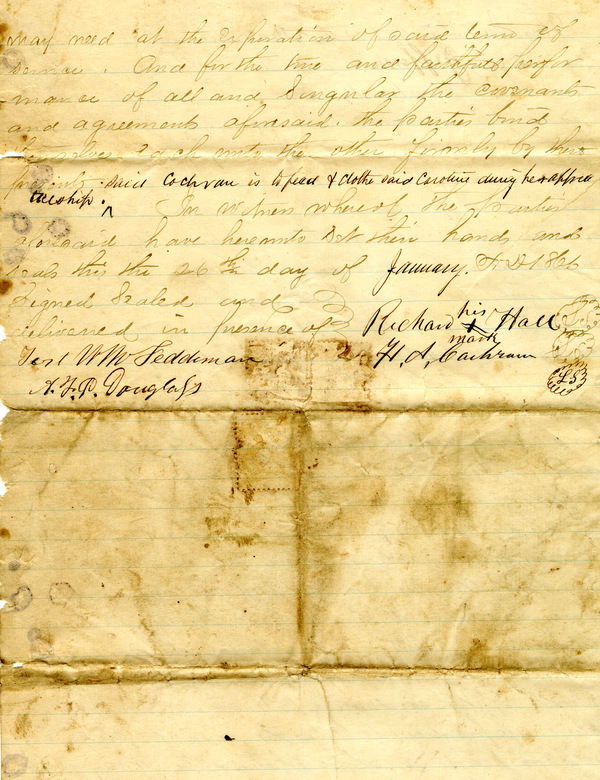 may need at the Expiration of said term of
service. And for the true and faithful perfor
mance of all and Singular the covenants
and agreements aforesaid. the parties bind
themselves Each unto the other firmly by these
presents. said Cochran is to feed & clothe said Caroline during her appren
ticeship. ^ In witness whereof the parties
aforesaid have hereunto set their hands and
seals this the 26th day of January. A.D 1866
Signed Sealed and
delivered in presence of
Richard his X mark Hall
Test W W Feddeman
H. A. Cochran
A. F. P. Douglass
LS